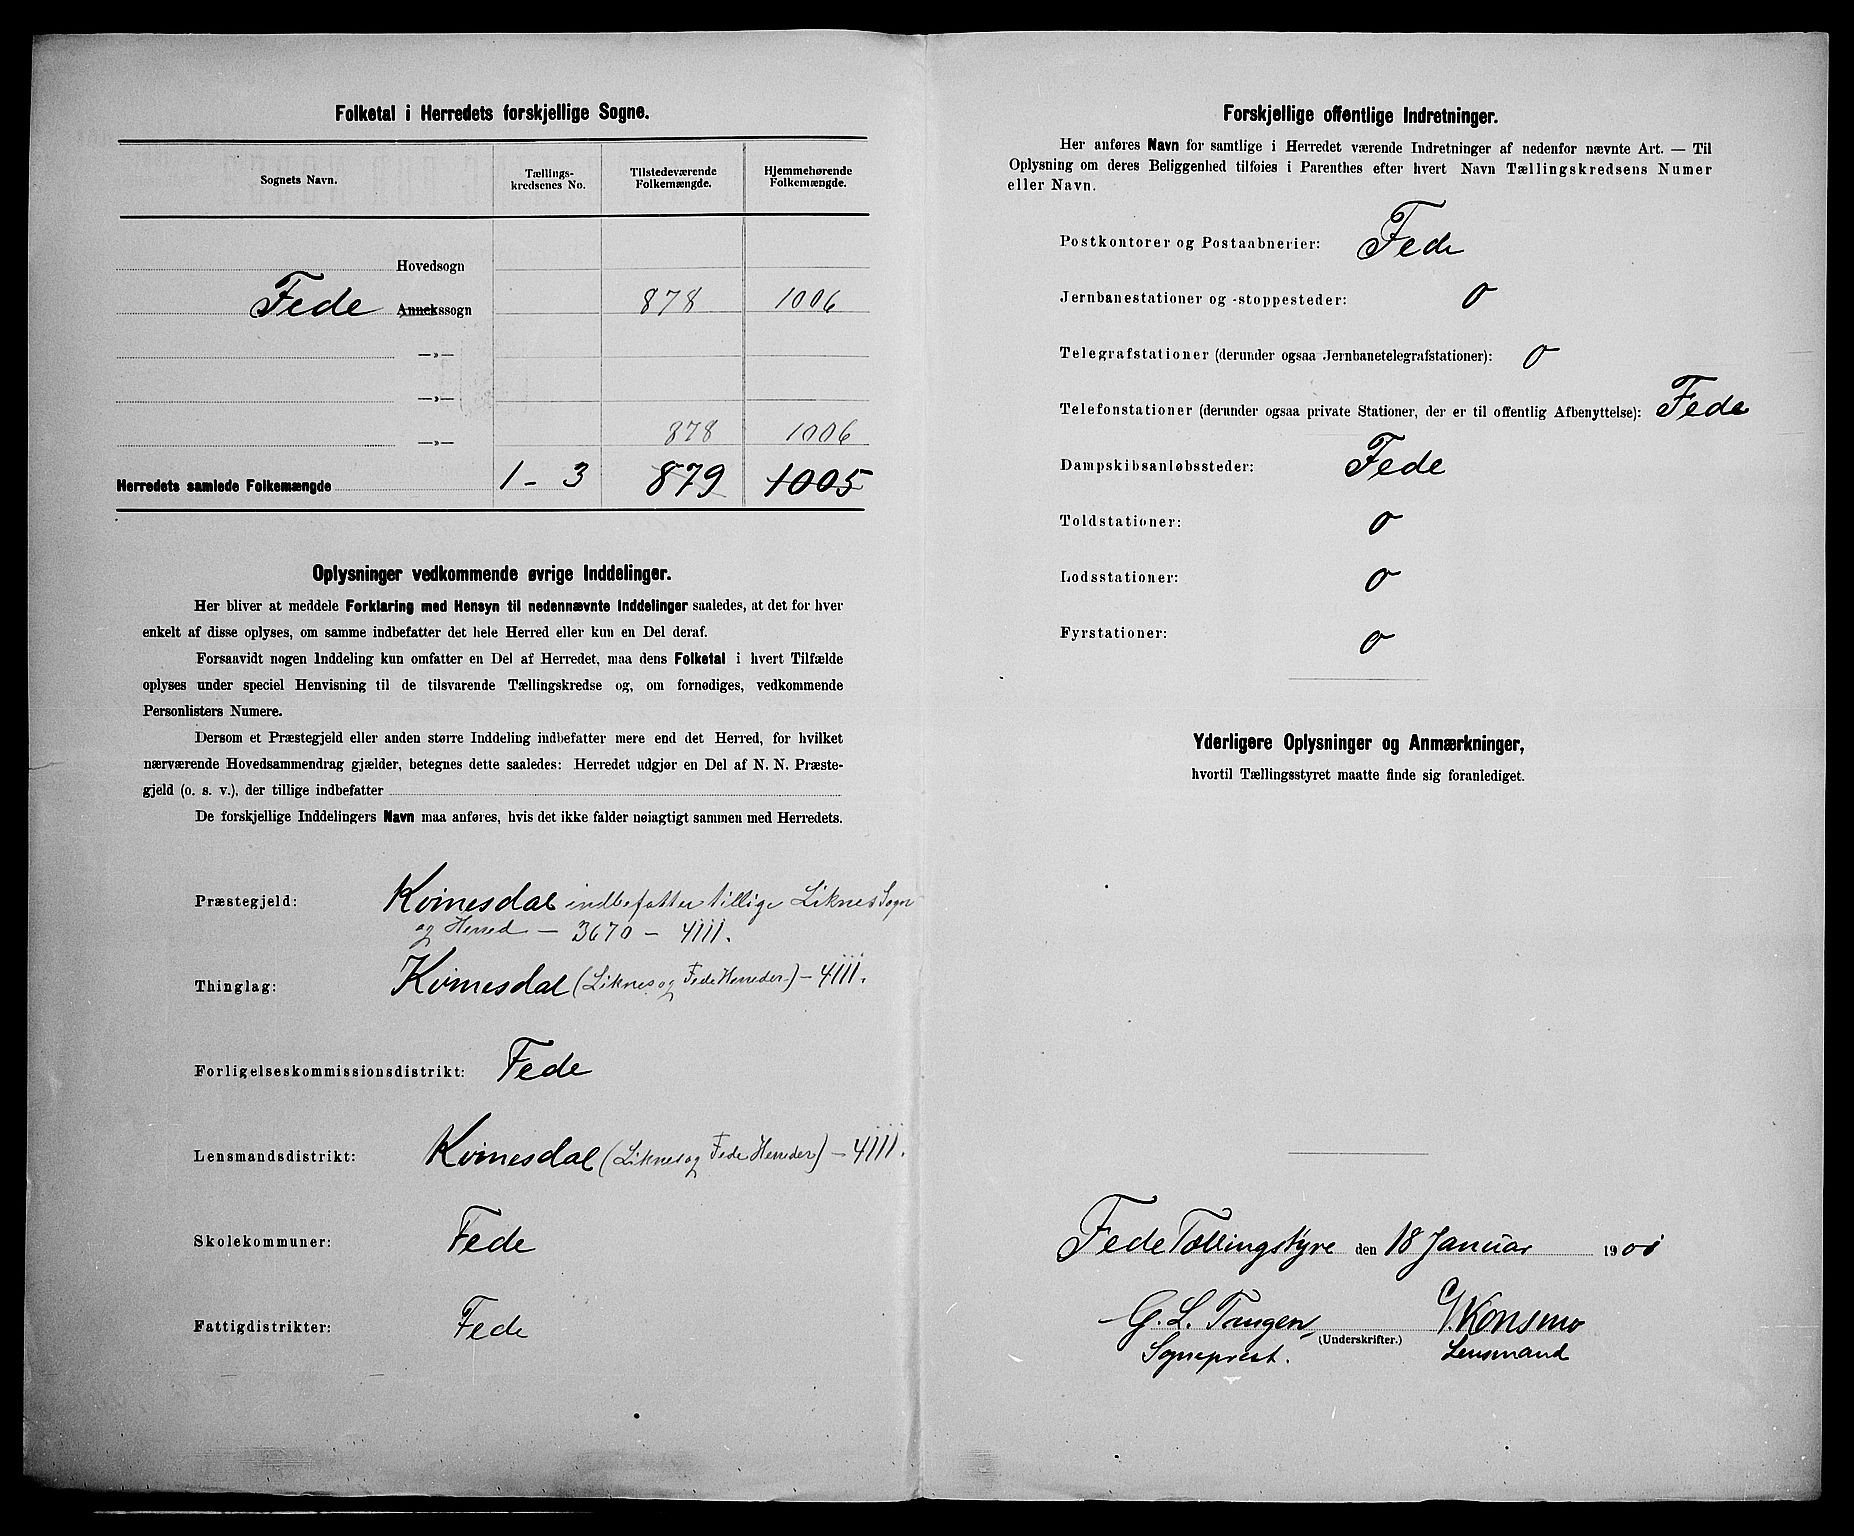 Folketal i Herredets forskjellige Sogne.
Sognets Navn.
Tællings-
kredsenes No.
Tilstedeværende
Folkemængde.
Hjemmehørende
Folkemængde.
Hovedsogn
Fede Annekssogn 878 1006
—»—
—»—
—»— 878 1006
Herredets samlede Folkemængde 1 - 3 879 1005
Oplysninger vedkommende øvrige Inddelinger.
Her bliver at meddele Forklaring med Hensyn til nedennævnte Inddelinger saaledes, at det for hver
enkelt af disse oplyses, om samme indbefatter det hele Herred eller kun en Del deraf.
Forsaavidt nogen Inddeling kun omfatter en Del af Herredet, maa dens Folketal i hvert Tilfælde
oplyses under speciel Henvisning til de tilsvarende Tællingskredse og, om fornødiges, vedkommende
Personlisters Numere.
Dersom et Præstegjeld eller anden større Inddeling indbefatter mere end det Herred, for hvilket
nærværende Hovedsammendrag gjælder, betegnes dette saaledes: Herredet udgjør en Del af N. N. Præste-
gjeld (o. s. v.), der tillige indbefatter
De forskjellige Inddelingers Navn maa anføres, hvis det ikke falder nøiagtigt sammen med Herredets.
Præstegjeld: Kvinesdal indbefatter tillige Liknes Sogn
og Herred — 3670 — 4111.
Thinglag: Kvinesdal (Liknes og Fede Herreder) — 4111.
Forligelseskommissionsdistrikt: Fede
Lensmandsdistrikt: Kvinesdal (Liknes og Fede Herreder) — 4111.
Skolekommuner: Fede
Fattigdistrikter: Fede
Forskjellige offentlige Indretninger.
Her anføres Navn for samtlige i Herredet værende Indretninger af nedenfor nævnte Art. — Til
Oplysning om deres Beliggenhed tilføies i Parenthes efter hvert Navn Tællingskredsens Numer
eller Navn.
Postkontorer og Postaabnerier: Fede
Jernbanestationer og -stoppesteder: 0
Telegrafstationer (derunder ogsaa Jernbanetelegrafstationer): 0
Telefonstationer (derunder ogsaa private Stationer, der er til offentlig Afbenyttelse): Fede
Dampskibsanløbssteder: Fede
Toldstationer: 0
Lodsstationer: 0
Fyrstationer: 0
Yderligere Oplysninger og Anmærkninger,
hvortil Tællingsstyret maatte finde sig foranlediget.
Fede Tællingstyre den 18 Januar 1901
G. L. Tangen, (Underskrifter.) Konsmo
Sogneprest. Lensmand